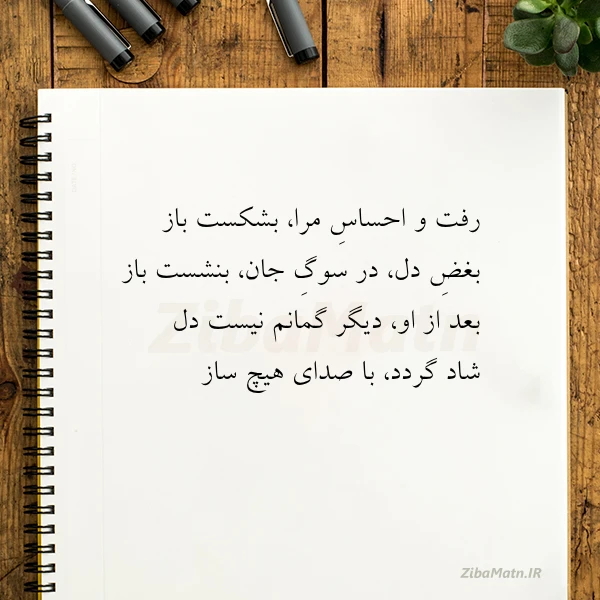 رفت و احساسِ مرا، بشکست باز
بغضِ دل، در سوگِ جان، بنشست باز
بعد از او، دیگر گمانم نیست دل
شاد گردد، با صدای هیچ ساز
ZibaMatn
ZibaMatn.IR